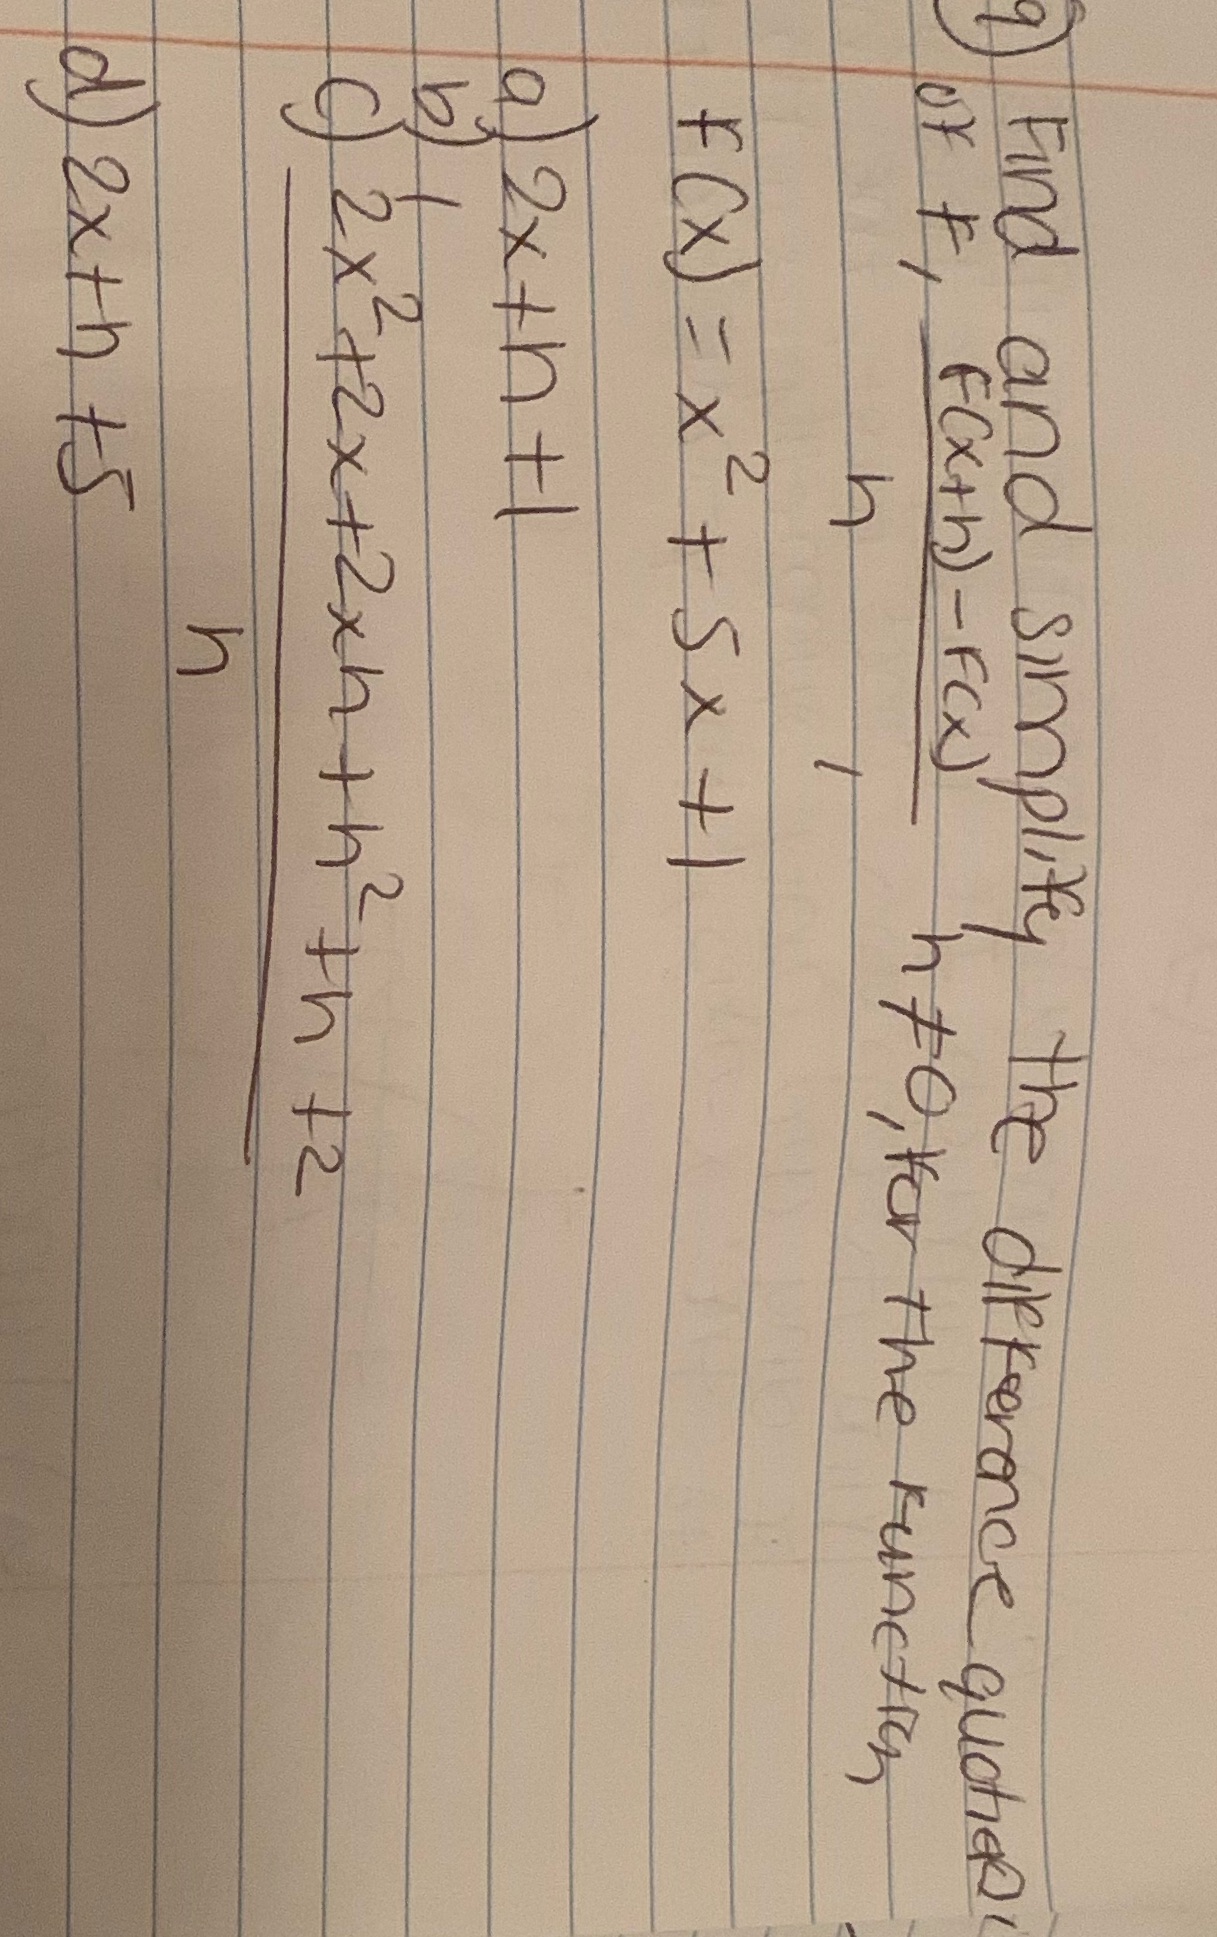 9) Find and simplify the difference quotien
of F, F(x+h)-F(x) h≠0, for the function,
h ,
F(x) = x² + 5x + 1
a) 2x+h+1
b) 1
c) 2x²+2x+2xh+h²+h+2
h
d) 2x+h+5